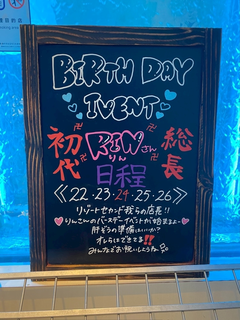 BIRTH DAY
IVENT
卍 卍
初代 RINさん 総長
りん
卍 卍
日程
《22.23.24.25.26》
リゾートセカンド我らの店長!!
りんさんのバースデーイベントが始まるよー
肝ぞうの準備はいいか?
オレらはできてる!!
みんなでお祝いしようね